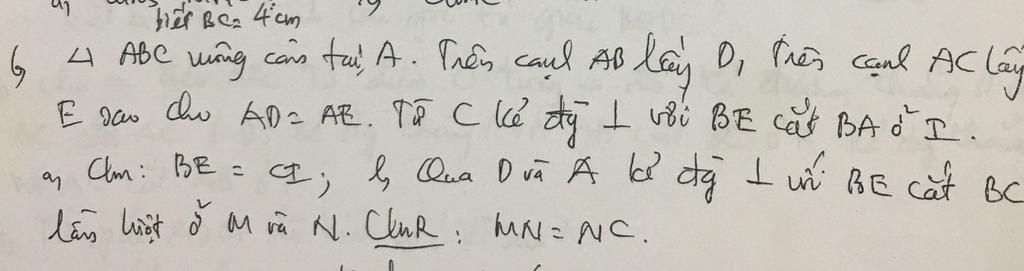 biết BC = 4cm
6, Δ ABC vuông cân tại A. Trên cạnh AB lấy D, Trên cạnh AC lấy
E sao cho AD = AE. Từ C kẻ đg̃ ⊥ với BE cắt BA ở I.
a, Cm: BE = CI; b, Qua D và A kẻ đg̃ ⊥ với BE cắt BC
lần lượt ở M và N. CMR: MN = NC.